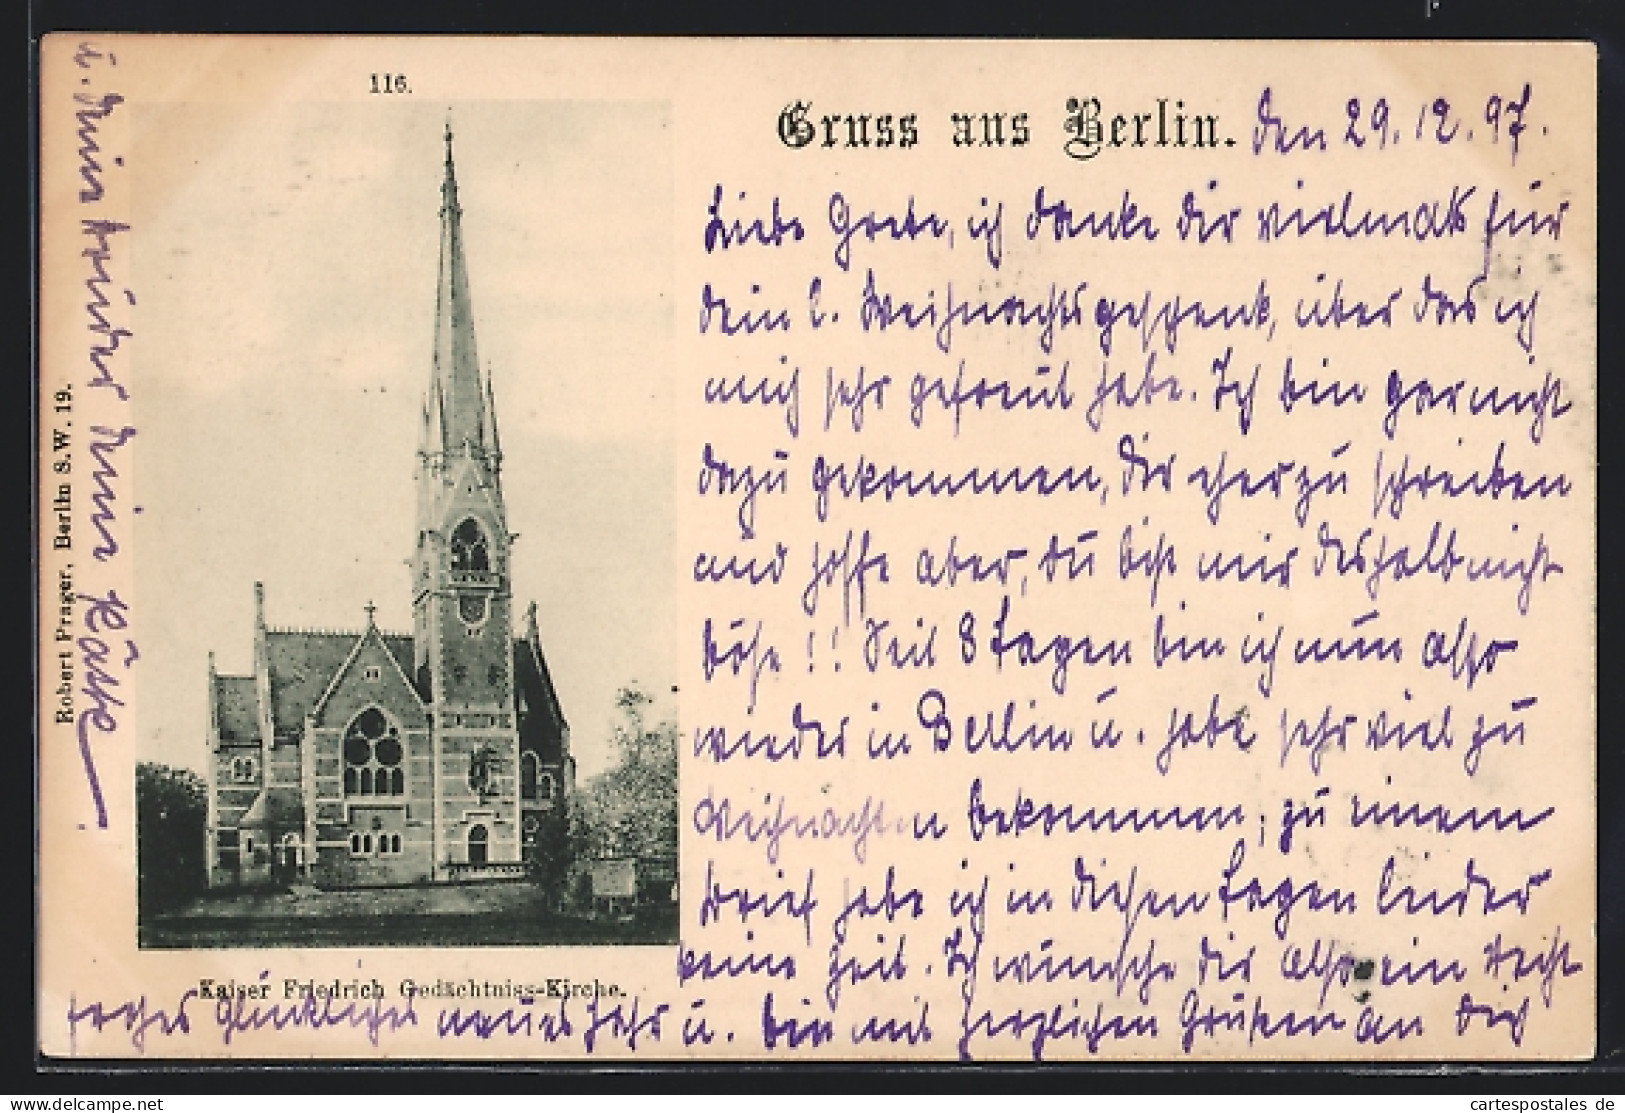 116.
Gruss aus Berlin. den 29.12.97.
Liebe Grete, ich danke dir vielmals für
dein l. Weihnachtsgeschenk, über das ich
mich sehr gefreut habe. Ich bin gar nicht
dazu gekommen, dir eher zu schreiben
und hoffe aber, du bist mir deshalb nicht
böse!! Seit 8 Tagen bin ich nun also
wieder in Berlin u. habe sehr viel zu
Weihnachten bekommen; zu einem
Brief habe ich in diesen Tagen leider
keine Zeit. Ich wünsche dir also ein recht
frohes glückliches neues Jahr u. bin mit herzlichen Grüßen an dich
u. deine Brüder deine Käthe.
Kaiser Friedrich Gedächtniss-Kirche.
Robert Prager, Berlin S.W. 19.
www.delcampe.net
cartespostales de